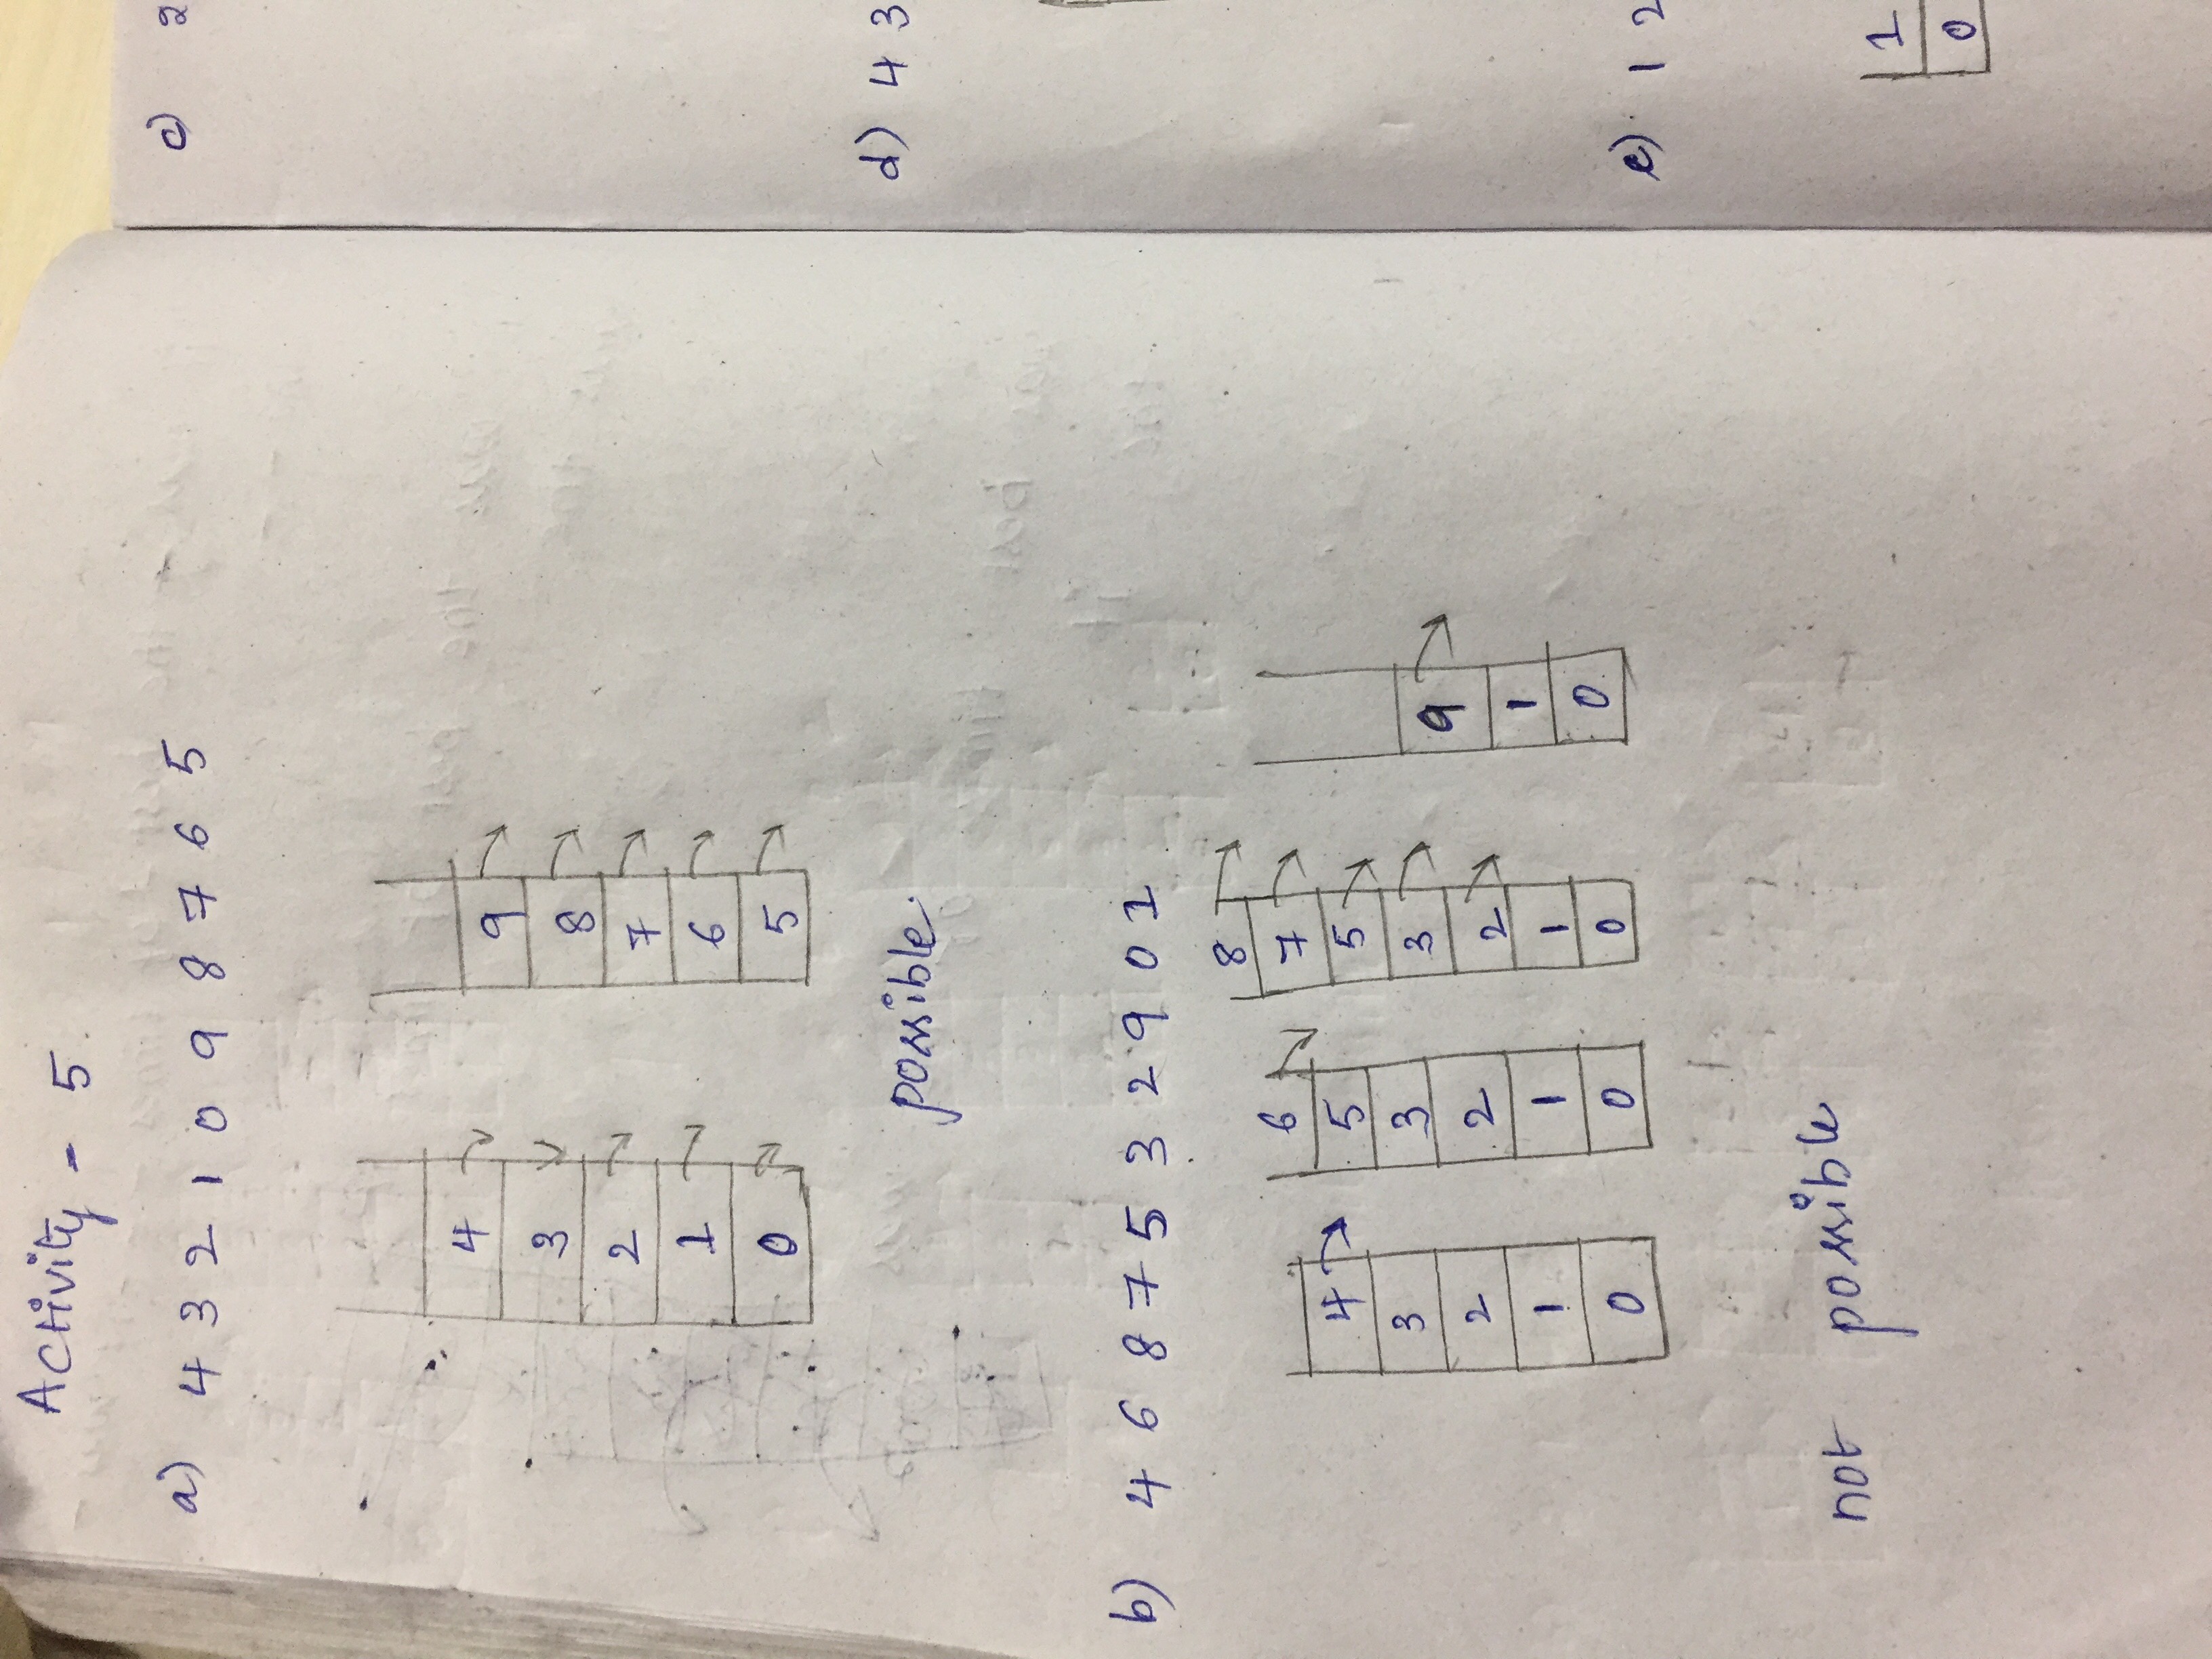 Activity - 5.
a) 4 3 2 1 0 9 8 7 6 5
4
3
2
1
0
9
8
7
6
5
possible.
b) 4 6 8 7 5 3 2 9 0 1
4
3
2
1
0
6
5
3
2
1
0
8
7
5
3
2
1
0
9
1
0
not possible
c) 2
d) 4 3
e) 1 2
1
0